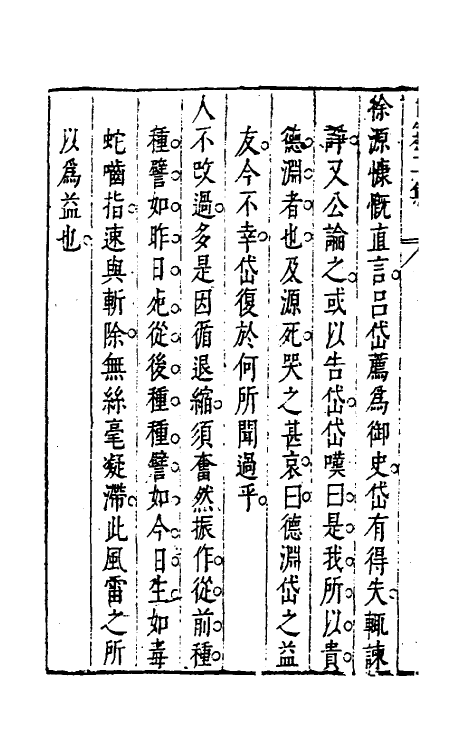 徐源慷慨直言呂岱薦為御史岱有得失輒諫
諍又公論之或以告岱岱嘆曰是我所以貴
德淵者也及源死哭之甚哀曰德淵岱之益
友今不幸岱復於何所聞過乎
人不改過多是因循退縮須奮然振作從前種
種譬如昨日死從後種種譬如今日生如毒
蛇嚙指速與斬除無絲毫凝滯此風雷之所
以為益也